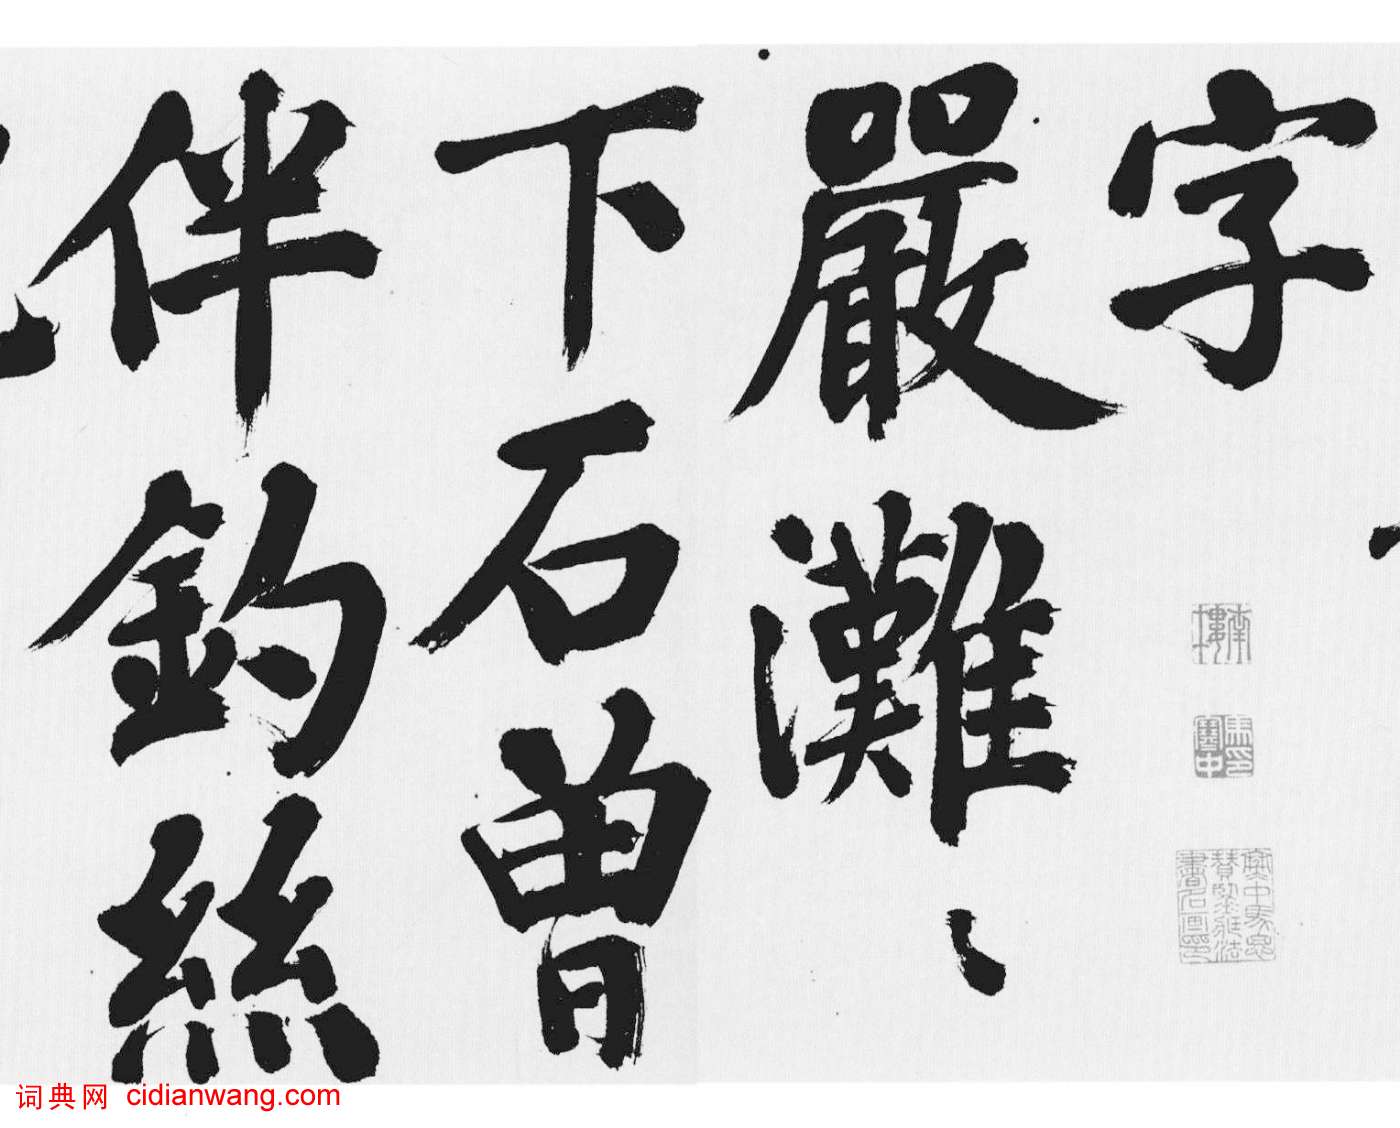 字
嚴灘
下石曾
伴釣絲
词典网 cidianwang.com